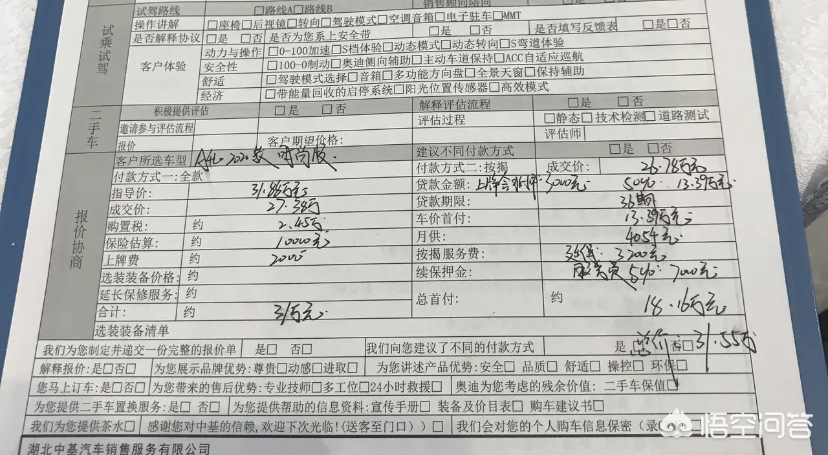 试驾路线 □路线A□路线B 销售顾问陪同
试乘试驾
操作讲解 □座椅□后视镜□转向□驾驶模式□空调音箱□电子驻车□MMT
是否解释协议 □是 □否 是否为您系上安全带 □是 □否 是否填写反馈表 □是 □否
客户体验
动力与操作 □0-100加速□S档体验□动态模式□动态转向□S弯道体验
安全性 □100-0制动□奥迪侧向辅助□主动车道保持□ACC自适应巡航
舒适 □驾驶模式选择□音箱□多功能方向盘□全景天窗□保持辅助
经济 □带能量回收的启停系统□阳光位置传感器□高效模式
二手车
积极提供评估 □是 □否 解释评估流程 □是 □否
邀请参与评估流程 评估过程 □静态□技术检测□道路测试
报价 客户期望价格: 评估师
报价协商
客户所选车型 A4L 2020款 时尚版 建议不同付款方式 □是 □否
付款方式一:全款 付款方式二:按揭 成交价: 26.78万元
指导价: 31.86万元 贷款金额: 5000元 50% 13.39万元
成交价: 27.38万 贷款期限: 36期
购置税: 约 2.45万 车价首付: 13.39万元
保险估算: 约 10000元 月供: 4054元
上牌费 约 2000 按揭服务费: 3200元
选装装备价格: 约 续保押金: 7000元
延长保修服务: 约 总首付: 约 18.16万元
合计: 约 31万元
选装装备清单
总价 31.55万
我们为您制定并递交一份完整的报价单 是□否□ 我们向您建议了不同的付款方式 是 □否□
解释报价:是□否□ 为您展示品牌优势:尊贵□动感□进取□ 为您讲述产品优势:安全□ 品质□ 舒适□ 操控□ 环保□
您马上订车:是□否□ 为您带来的售后优势:专业技师□多工位□24小时救援□ 奥迪为您考虑的残余价值: 二手车保值□
为您提供二手车置换服务:是□ 否□ 为您提供帮助的信息资料:宣传手册□ 装备及价目表□ 购车建议书□
我们为您提供茶水□ 感谢您对中基的信赖,欢迎下次光临!(送客至门口)□ 我们会对您的个人购车信息保密(录
湖北中基汽车销售服务有限公司
悟空问答